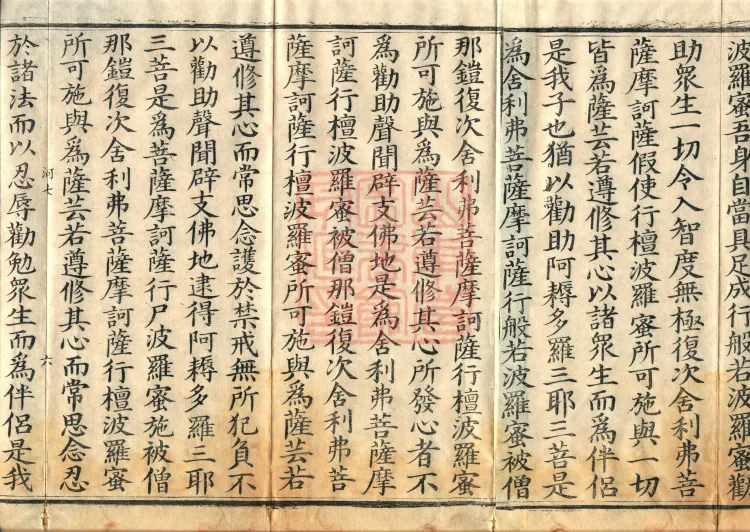 波羅蜜吾身自當具足成行般若波羅蜜勸
助衆生一切令入智度無極復次舍利弗菩
薩摩訶薩假使行檀波羅蜜所可施與一切
皆爲薩芸若遵修其心以諸衆生而爲伴侶
是我子也猶以勸助阿耨多羅三耶三菩是
爲舍利弗菩薩摩訶薩行般若波羅蜜被僧
那鎧復次舍利弗菩薩摩訶薩行檀波羅蜜
所可施與爲薩芸若遵修其心所發心者不
爲勸助聲聞辟支佛地是爲舍利弗菩薩摩
訶薩行檀波羅蜜被僧那鎧復次舍利弗菩
薩摩訶薩行檀波羅蜜所可施與爲薩芸若
遵修其心而常思念護於禁戒無所犯負不
以勸助聲聞辟支佛地逮得阿耨多羅三耶
三菩是爲菩薩摩訶薩行尸波羅蜜施被僧
那鎧復次舍利弗菩薩摩訶薩行檀波羅蜜
所可施與爲薩芸若遵修其心而常思念忍
河七 六
於諸法而以忍辱勸勉衆生而爲伴侶是我